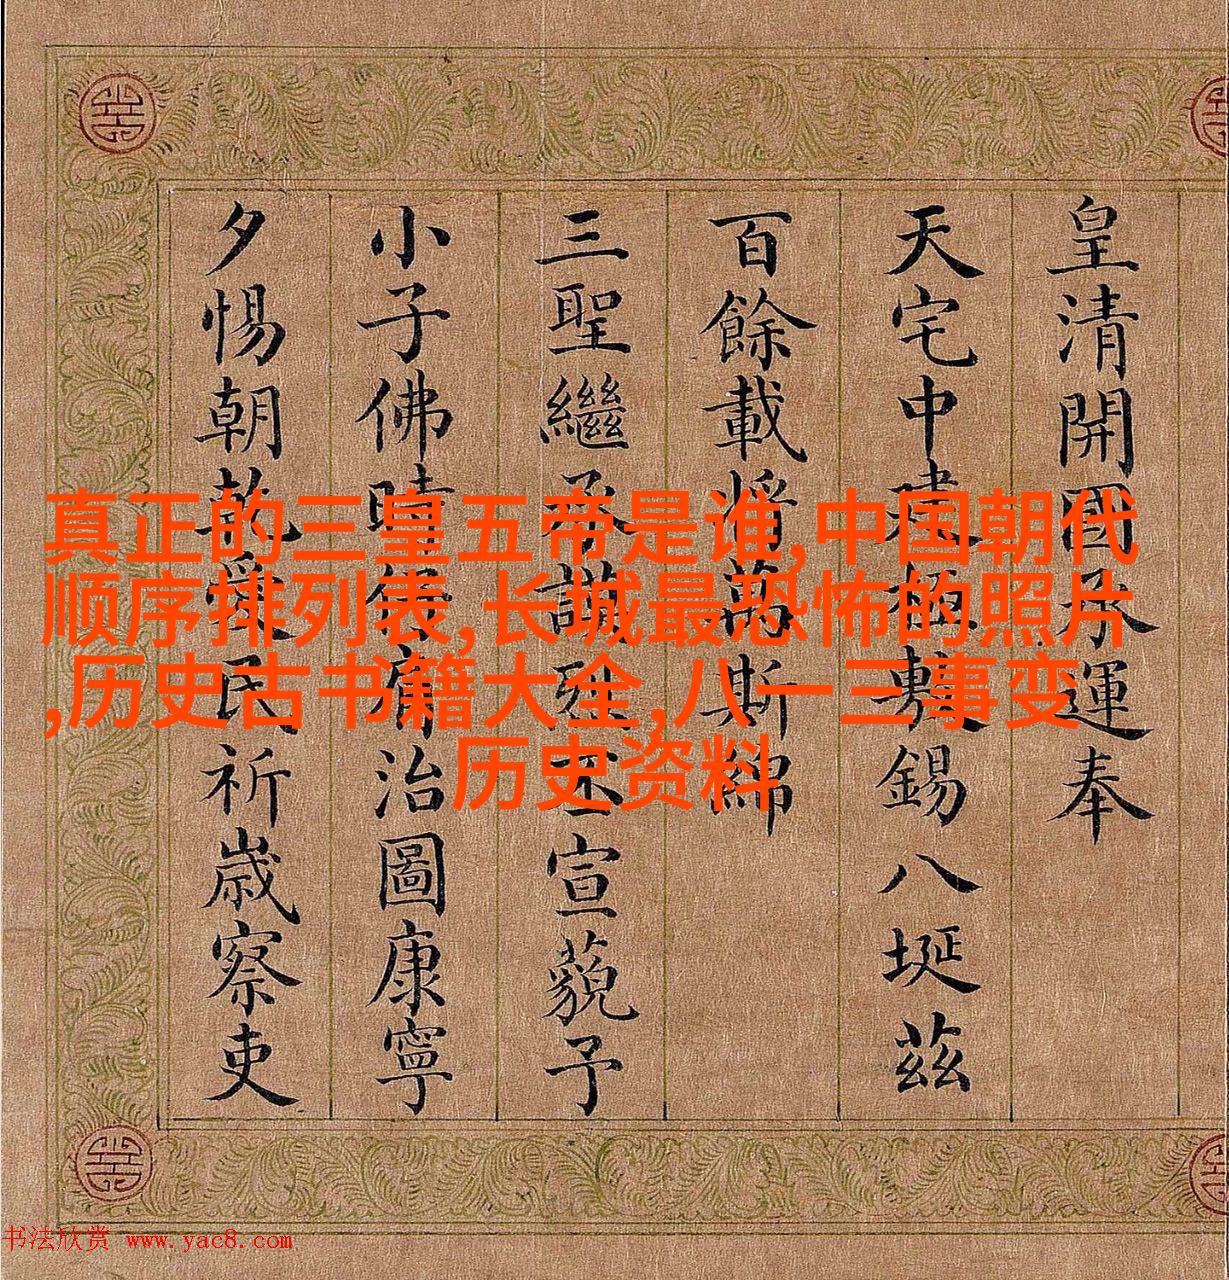 皇清開國承運奉
天宅中建極敷錫八埏茲
百餘載將萬斯綿
三聖繼承謨烈丕宣藐予
小子佛時治圖康寧
夕惕朝乾愛民祈歲察吏
真正的三皇五帝是谁,中国朝代
顺序排列表,长城最恐怖的照片
,历史古书籍大全,八一三事变
历史资料
书法欣赏 www.yac8.com